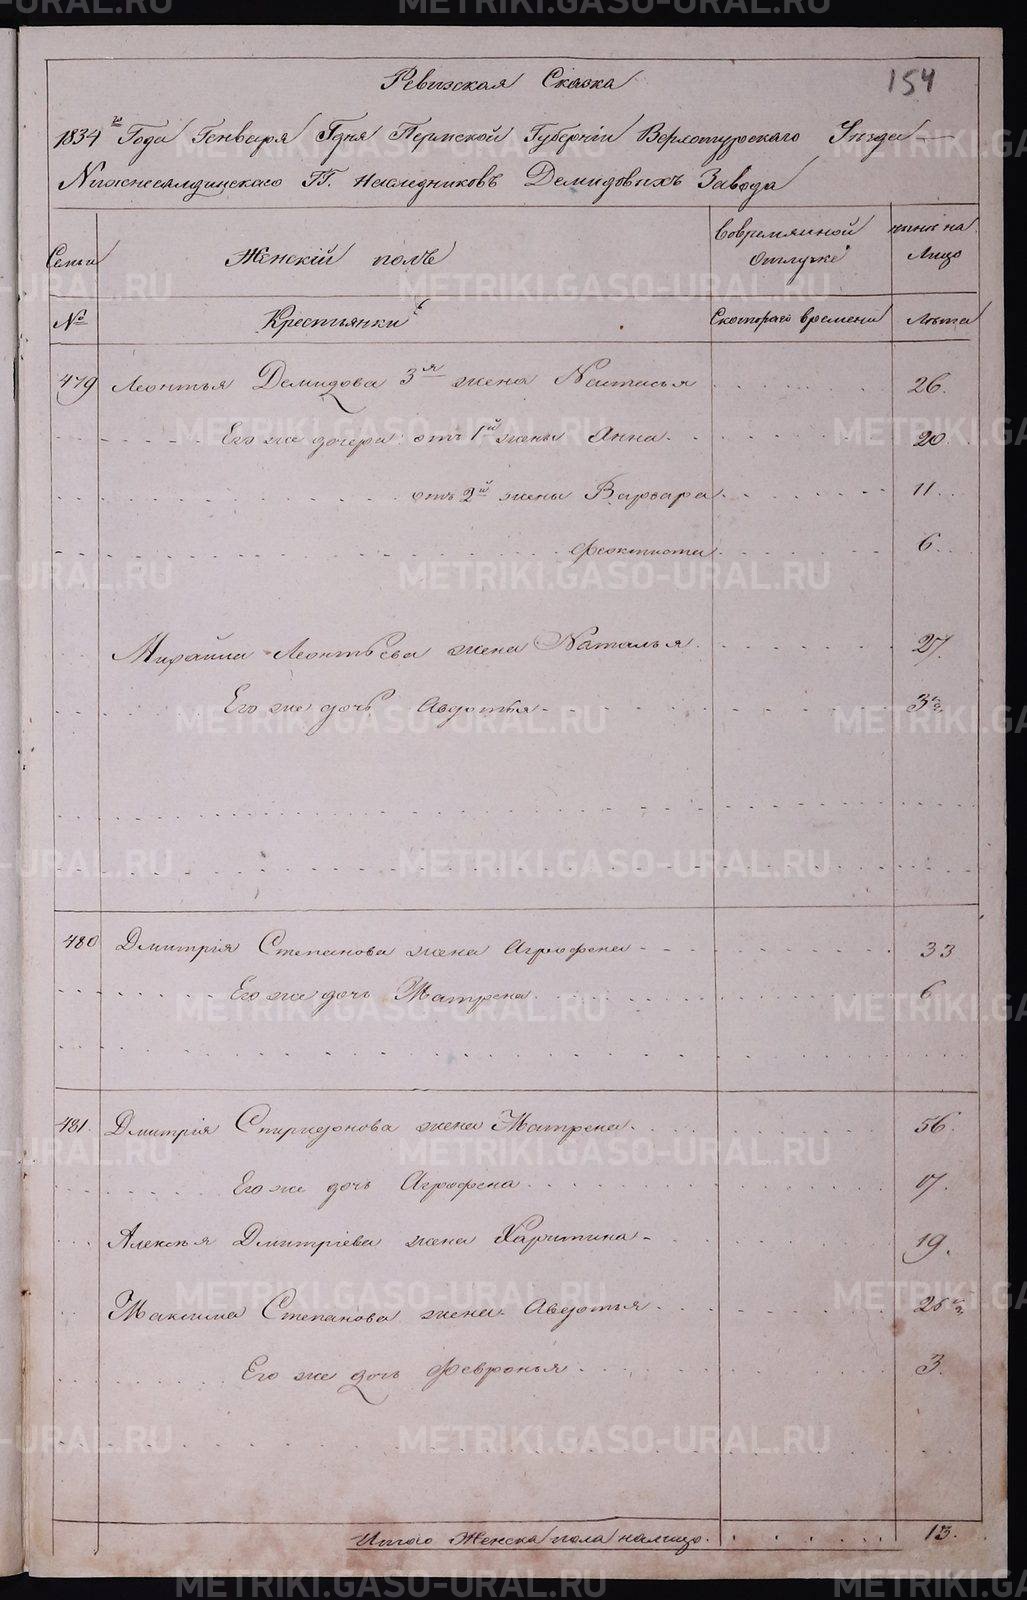 Ревизская Сказка
154
1834 го Года Генваря дня Пермской Губерніи Верхотурскаго Уезда
Нижнесалдинскаго ГГ. Наследниковъ Демидовыхъ Завода
Семьи Женскій полъ Вовремянной отлучке ныне на Лицо
№ Крестьянки Скотораго времени Лета
479 Леонтья Демидова 3я жена Настасья 26.
Его же дочери: отъ 1й жены Анна 20
отъ 2й жены Варвара 11
Феоктиста 6.
Михайла Леонтьева жена Наталья 27.
Его же дочь Авдотья 3½
480 Дмитрія Степанова жена Агрофена 33
Его же дочь Матрена 6
481. Дмитрія Спиридонова жена Матрена 56.
Его же дочь Агрофена 17.
Алексея Дмитріева жена Харитина 19.
Максима Степанова жена Авдотья
Его же дочь Февронья 3.
Итого Женска пола налицо 13.
METRIKI.GASO-URAL.RU